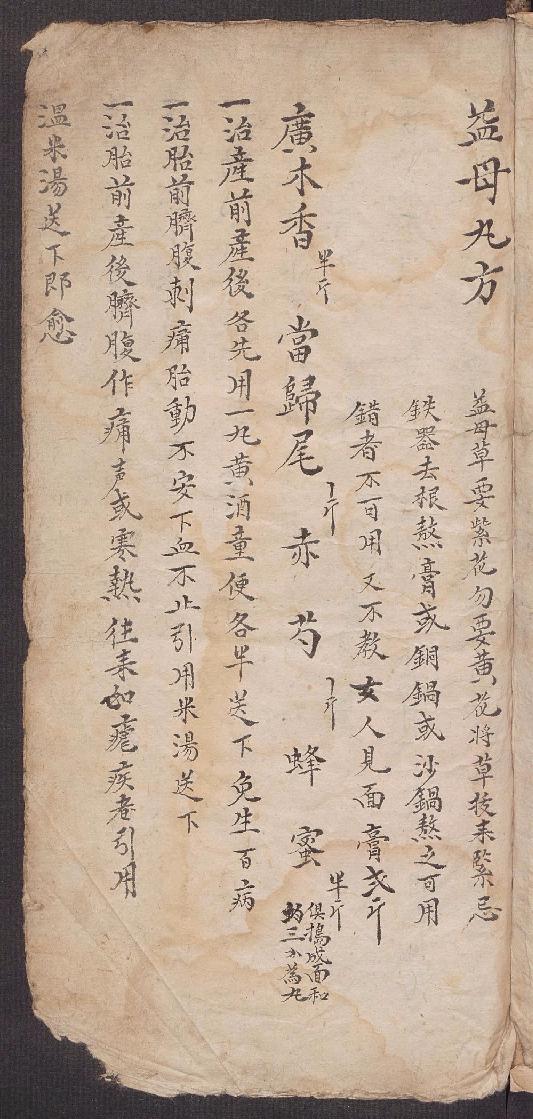 益母丸方
益母草要紫花勿要黄花將草扳來緊忌
鉄器去根熬膏或銅鍋或沙鍋熬之可用
錯者不可用又不教女人見面膏弍斤
廣木香 半斤 當歸尾 一斤 赤芍 一斤 蜂蜜 半斤
俱搗成面和
蚂三个為丸
一治產前產後各先用一丸黄酒童便各半送下免生百病
一治胎前臍腹刺痛胎動不安下血不止引用米湯送下
一治胎前產後臍腹作痛声或寒熱往来如瘧疾者引用
温米湯送下即愈